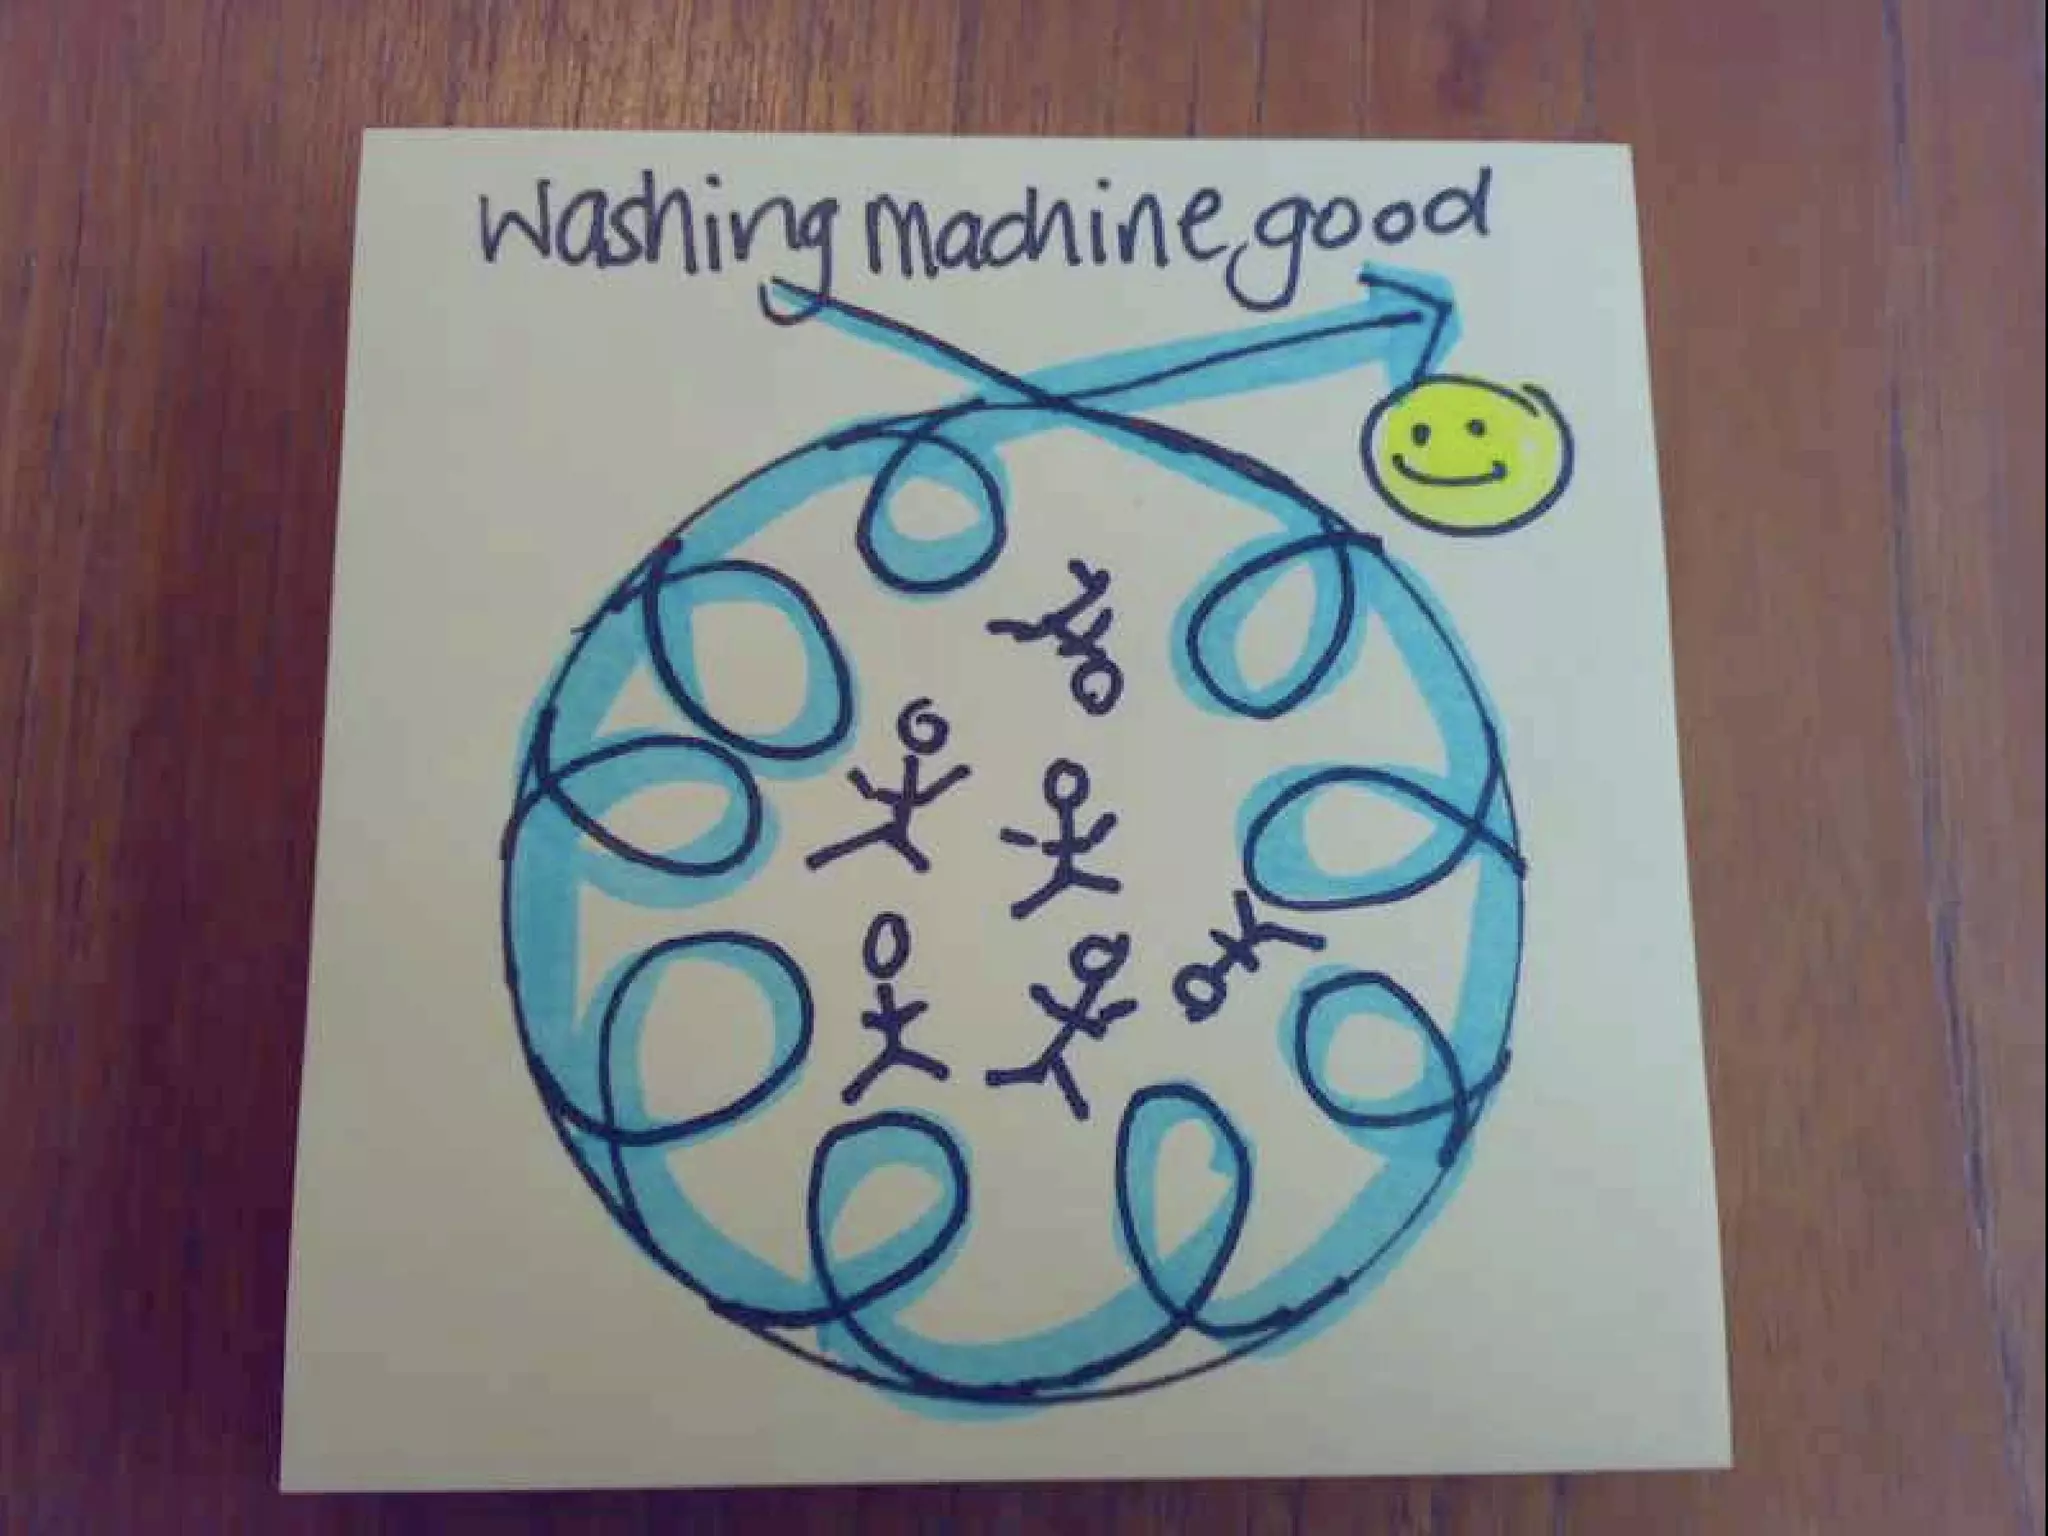 Washing machine good